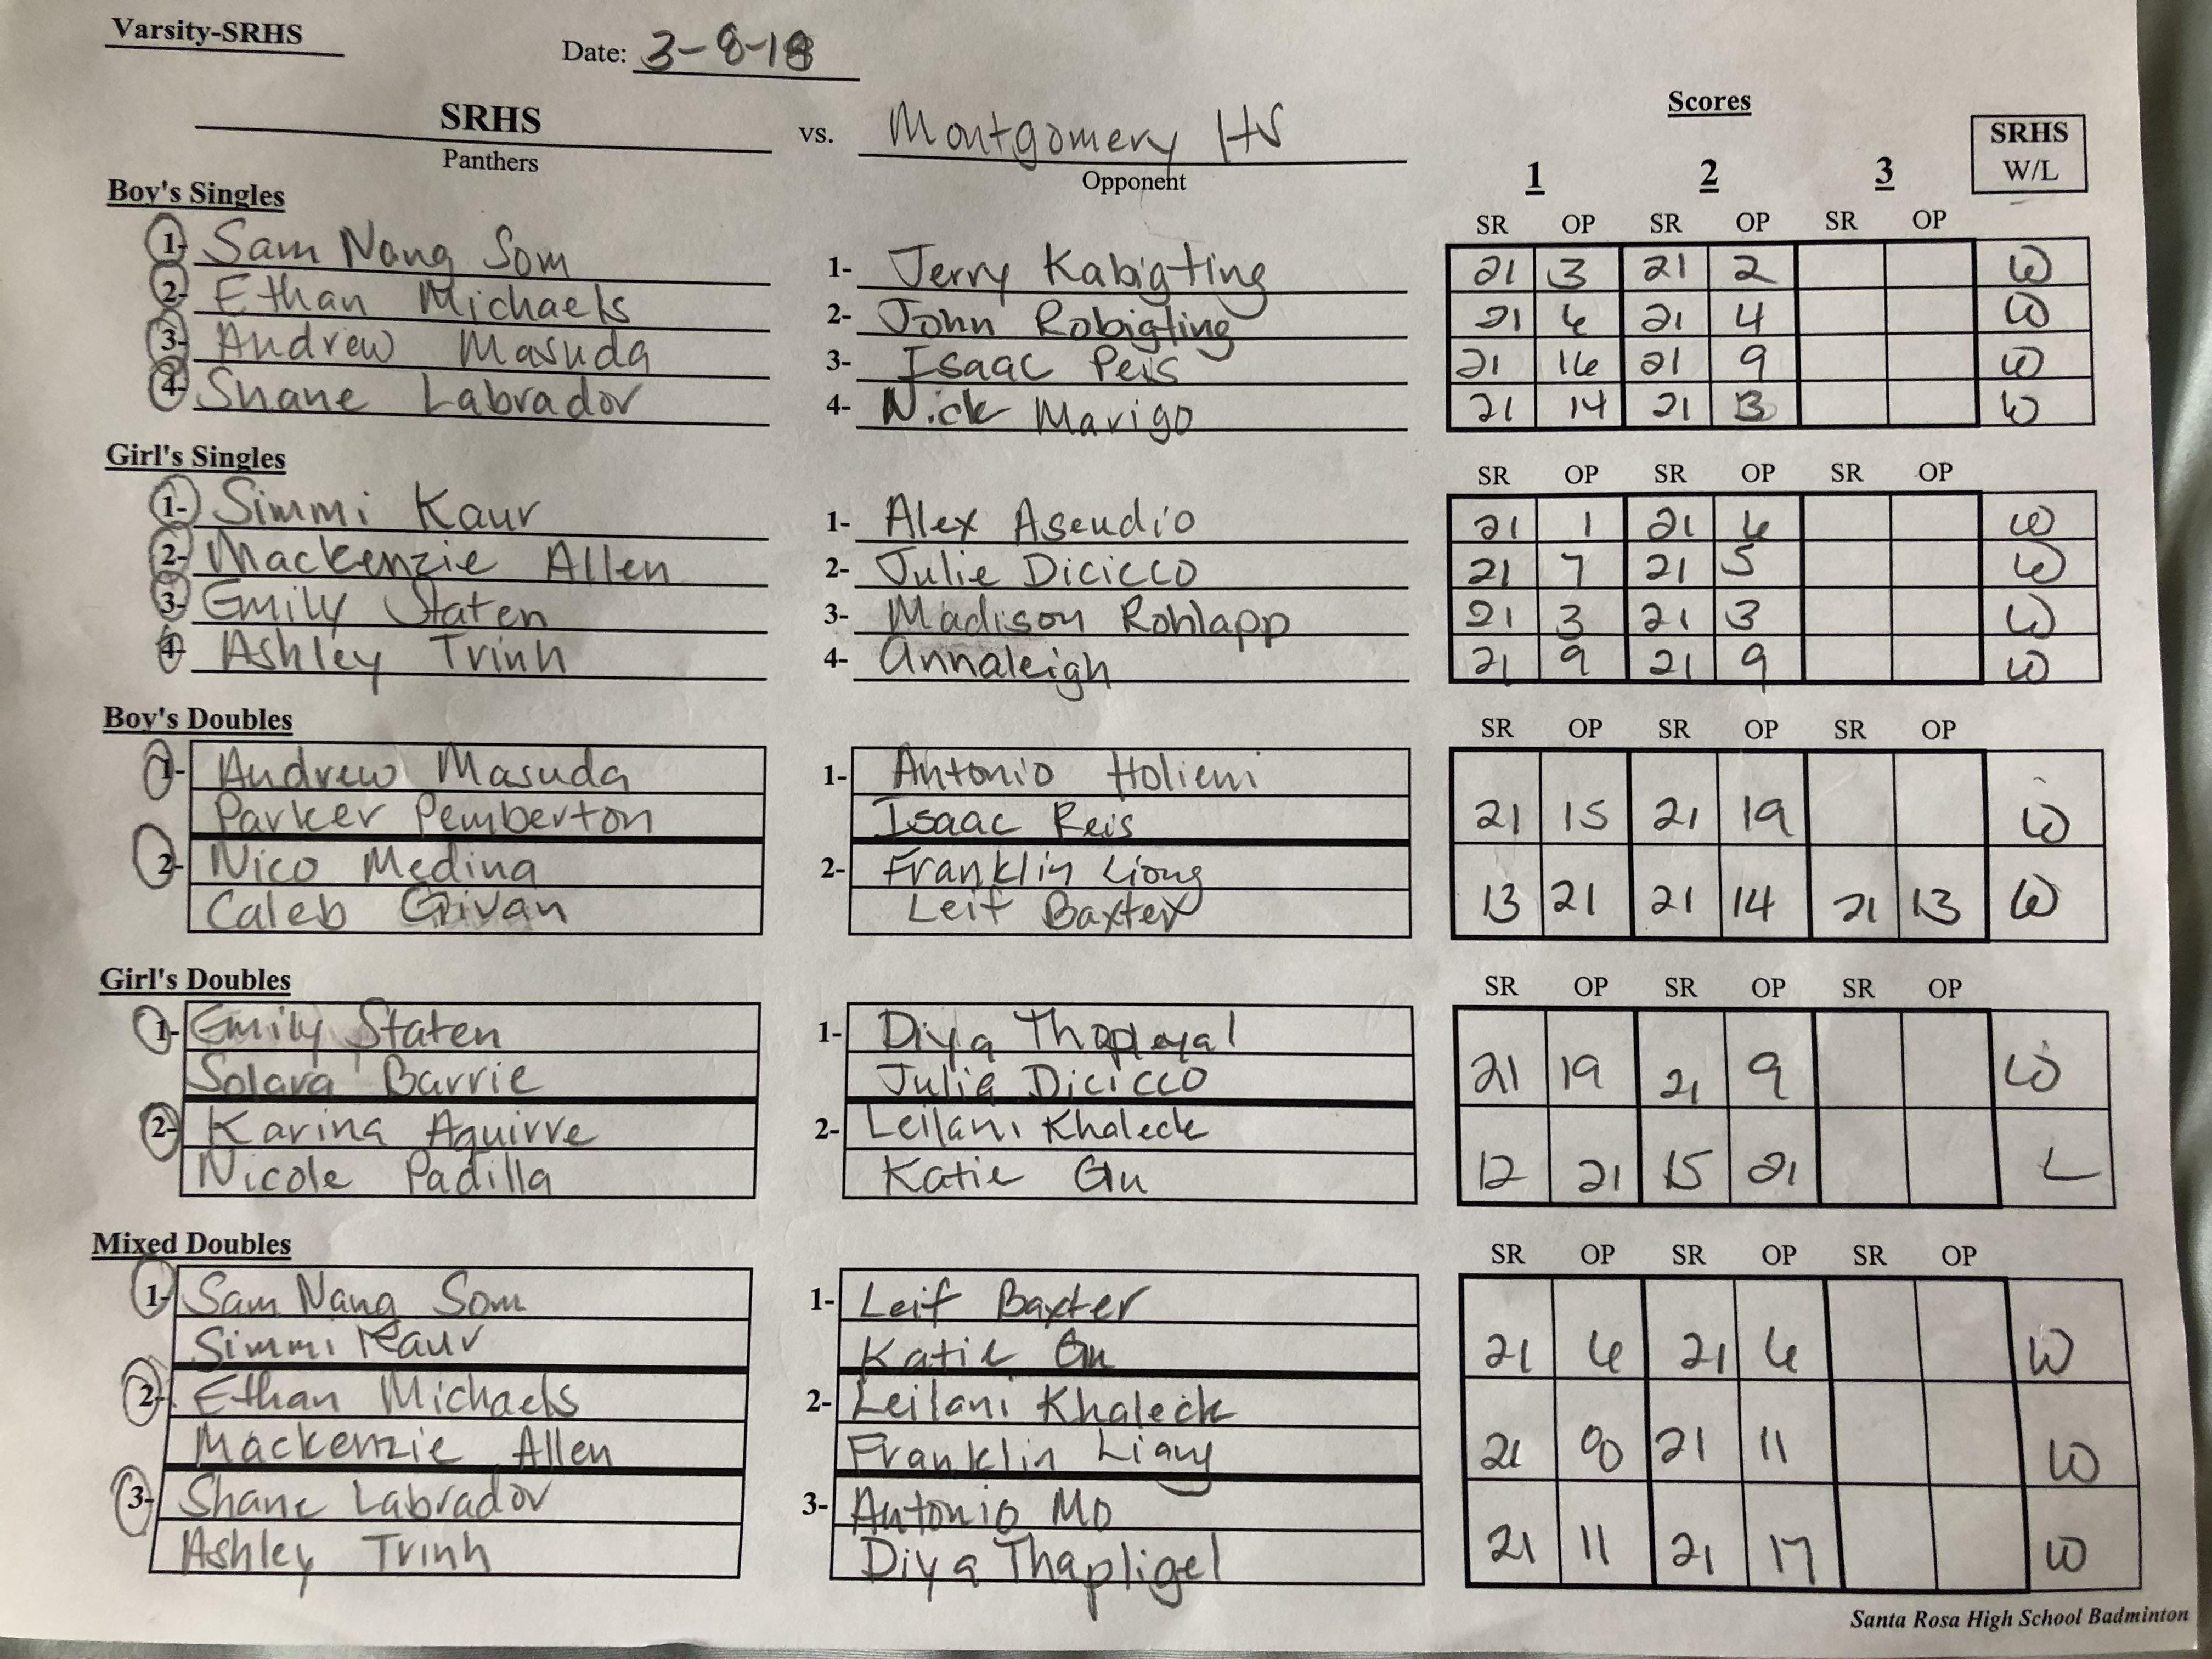 Varsity-SRHS
Date: 3-8-18
SRHS vs. Montgomery HS
Panthers Opponent
Scores
1 2 3
SRHS W/L
Boy's Singles
SR OP SR OP SR OP
1- Sam Nang Som 1- Jerry Kabigting 21 3 21 2 W
2- Ethan Michaels 2- John Robigting 21 6 21 4 W
3- Andrew Masuda 3- Isaac Peis 21 16 21 9 W
4- Shane Labrador 4- Nick Marigo 21 14 21 13 W
Girl's Singles
SR OP SR OP SR OP
1- Simmi Kaur 1- Alex Asendio 21 1 21 6 W
2- Mackenzie Allen 2- Julie Dicicco 21 7 21 5 W
3- Emily Staten 3- Madison Rohlapp 21 3 21 3 W
4- Ashley Trinh 4- Annaleigh 21 9 21 9 W
Boy's Doubles
SR OP SR OP SR OP
1- Andrew Masuda 1- Antonio
Parker Pemberton Isaac Reis
21 15 21 19 W
2- Nico Medina 2- Franklin Liong
Caleb Girvan Leif Baxter
13 21 21 14 21 13 W
Girl's Doubles
SR OP SR OP SR OP
1- Emily Staten 1- Diya
Solara Barrie Julia Dicicco
21 19 21 9 W
2- Karina Aguirre 2- Leilani Khaleck
Nicole Padilla Katie Gu
12 21 15 21 L
Mixed Doubles
SR OP SR OP SR OP
1- Sam Nang Som 1- Leif Baxter
Simmi Kaur Katie Gu
21 6 21 6 W
2- Ethan Michaels 2- Leilani Khaleck
Mackenzie Allen Franklin Liang
21 8 21 11 W
3- Shane Labrador 3- Antonio Mo
Ashley Trinh Diya Thapligel
21 11 21 17 W
Santa Rosa High School Badminton